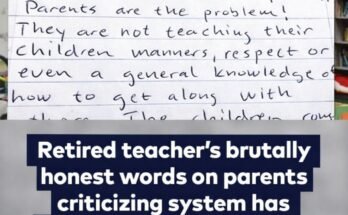 Parents are the problem!
They are not teaching their
children manners, respect or
even a general knowledge o
how to get along with
The children com
Retired teacher's brutally
honest words on parents
criticizing system has